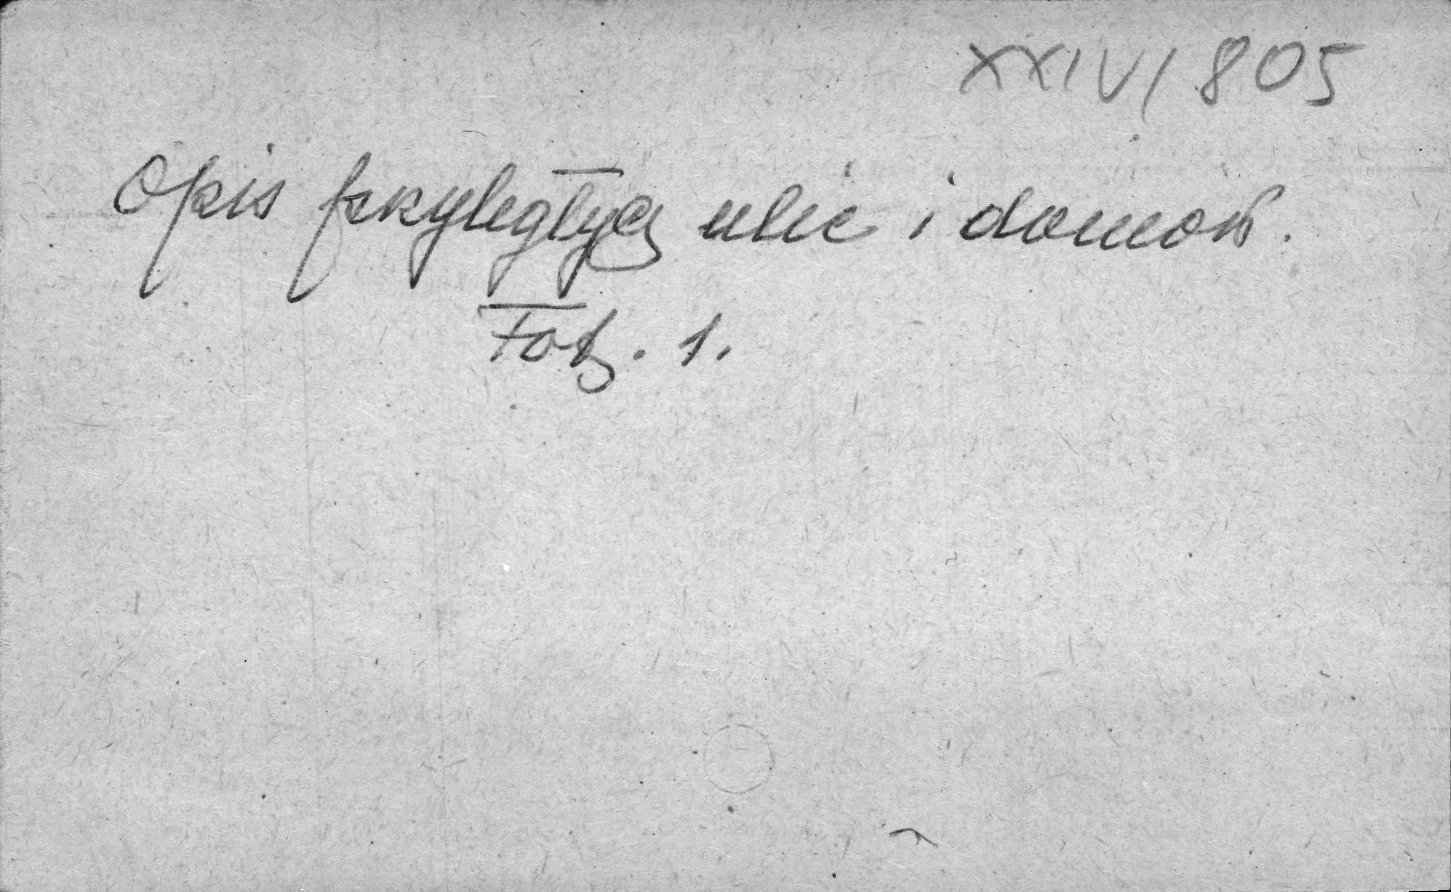 XXIV/805
Opis przyległych ulic i domów.
Fot. 1.